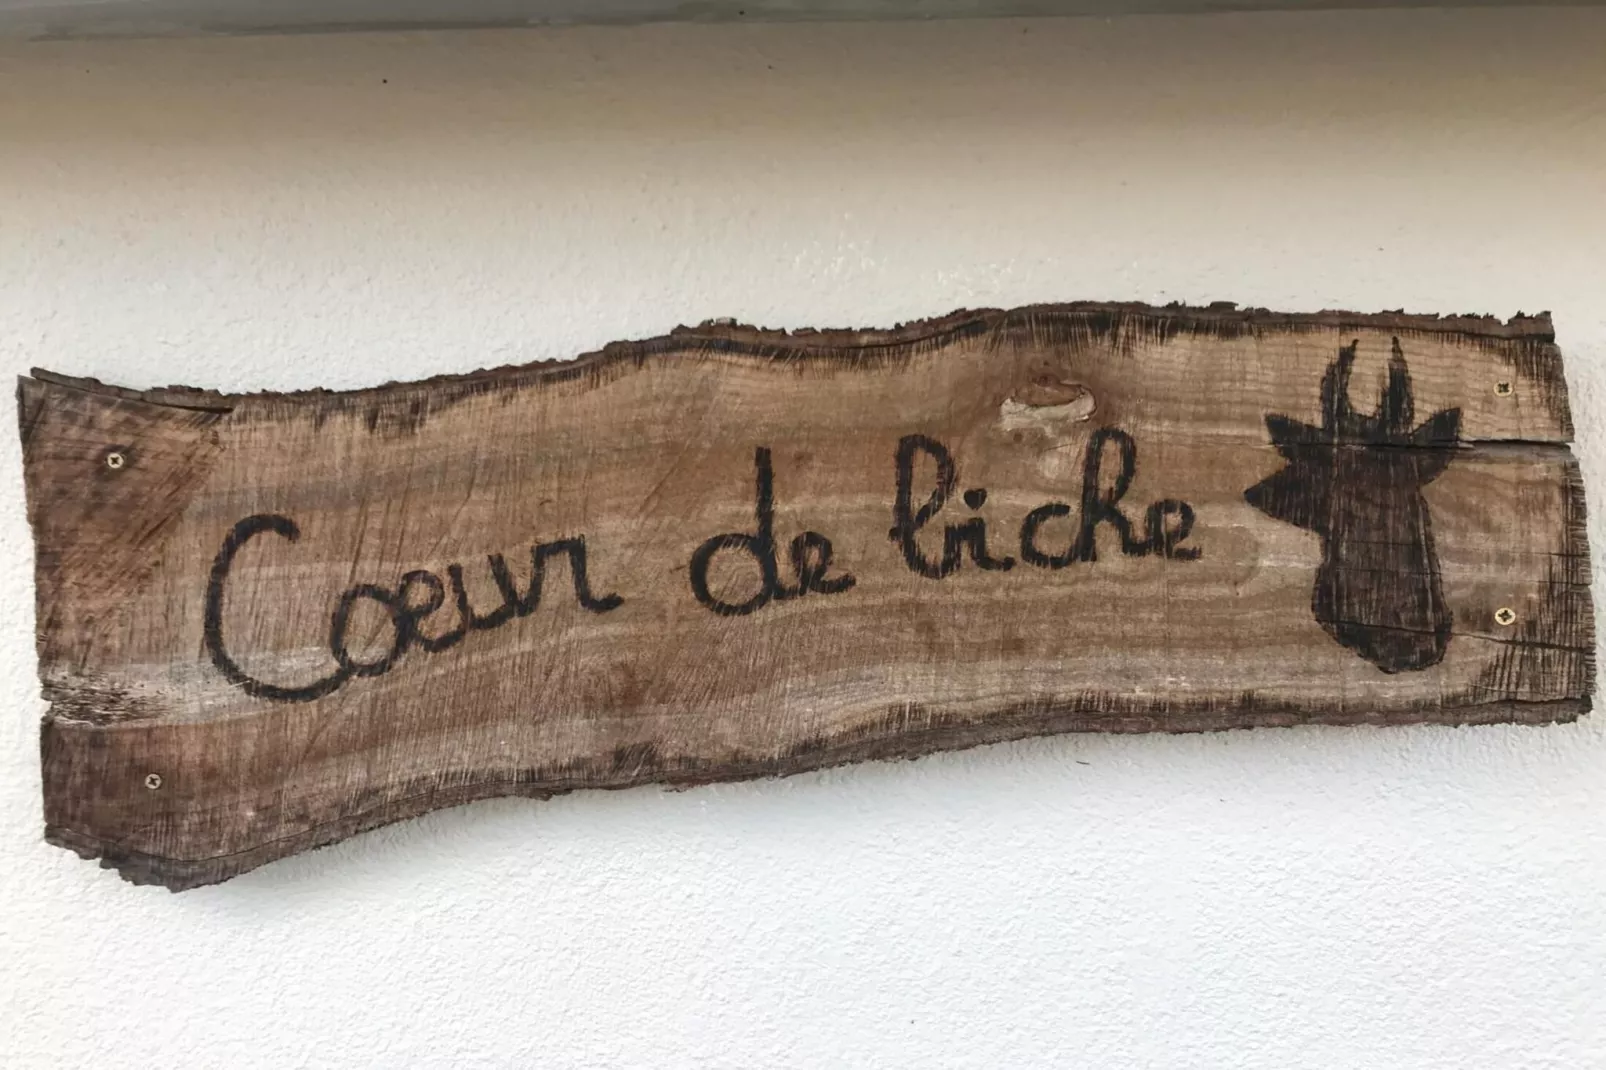 Coeur de biche